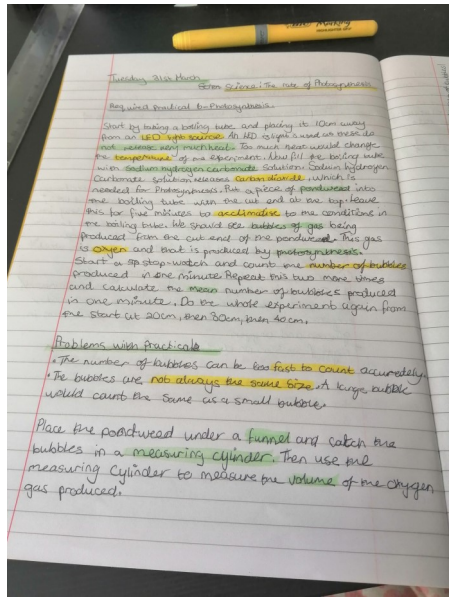 Marking
Tuesday 31st March
Science: The rate of Photosynthesis
Required Practical 6-Photosynthesis.
Start by taking a boiling tube and placing it 10cm away
from an LED light source. An LED is light used as these do
not release very much heat. Too much heat would change
the temperature of the experiment. Now fill the boiling tube
with sodium hydrogen carbonate solution. Sodium hydrogen
Carbonate solution releases carbon dioxide, which is
needed for Photosynthesis. Put a piece of pondweed into
the boiling tube with the cut end at the top. Leave
this for five minutes to acclimatise to the conditions in
the boiling tube. We should see bubbles of gas being
produced from the cut end of the pondweed. This gas
is oxygen and that is produced by photosynthesis.
Start a stop-watch and count the number of bubbles
produced in one minute. Repeat this two more times
and calculate the mean number of bubbles produced
in one minute. Do the whole experiment again from
the start at 20cm, then 30cm, then 40cm.
Problems with Practical
• The number of bubbles can be too fast to count accurately.
• The bubbles are not always the same size. A large bubble
would count the same as a small bubble.
Place the pondweed under a funnel and catch the
bubbles in a measuring cylinder. Then use the
measuring cylinder to measure the volume of the oxygen
gas produced.